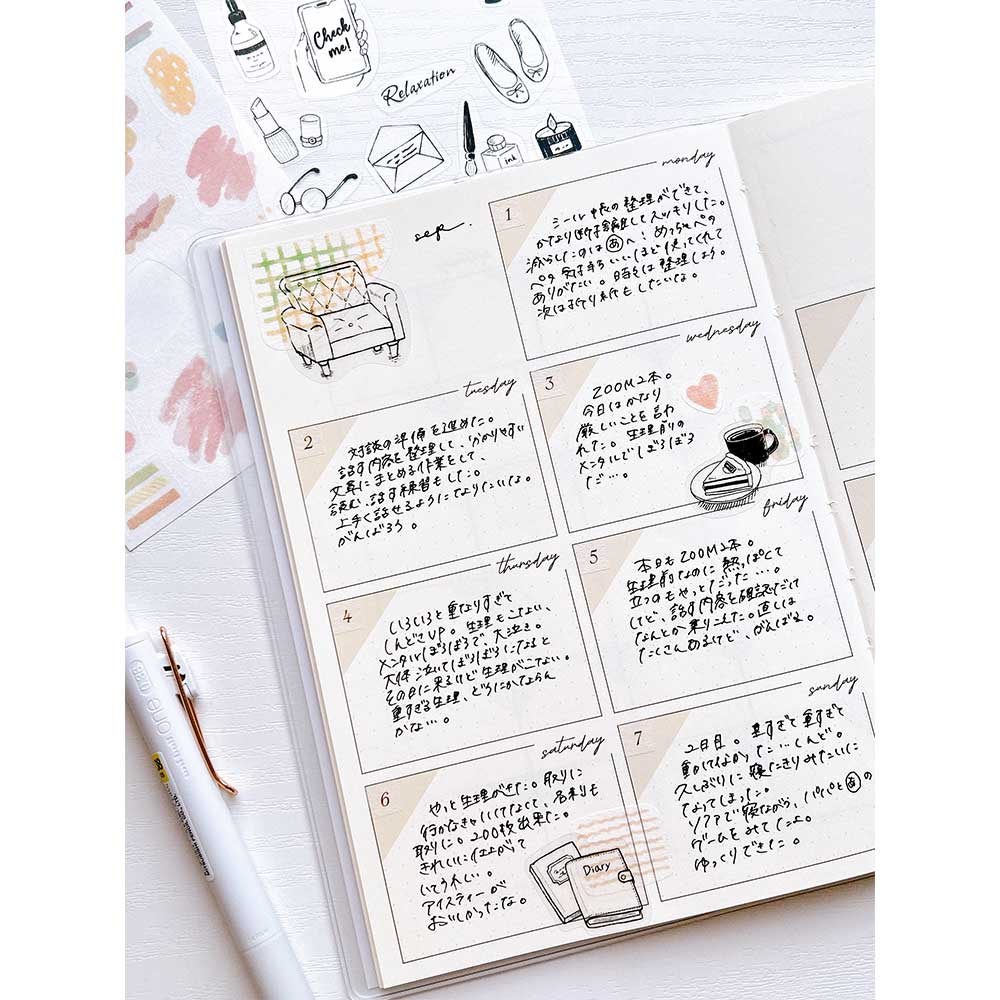 Check
me!
Relaxation
ink
sep.
monday
1
シール帳の整理ができて、
かなり断捨離してスッキリした。
減らしたのは あ へ！めっちゃペの
ありがたい。時々は整理しよう。
次は折り紙もしたいな。
tuesday
2
対談の準備を進めた。
話す内容を整理して、分かりやすい
文章にまとめる作業をして、
読む、話す練習もした。
上手く話せるようになりたいな。
がんばろう。
wednesday
3
ZOOM2本。
今日はかなり
厳しいことを言わ
れた。生理前の
メンタルでぼろぼろ
だ…。
thursday
4
いろいろと重なりすぎて
しんどさUP。生理もこない、
メンタルぼろぼろで、大泣き。
大体泣いてぼろぼろになると
その日に来るけど生理がこない。
重すぎる生理、どうにかならん
かな…。
friday
5
本日もZOOM2本。
生理前なのに熱っぽくて
立つのもやっとだった…。
けど、話す内容を確認だけ
なんとか乗りこえた。直しは
たくさんあるけど、がんばる。
saturday
6
やっと生理がきた。取りに
行かなきゃいけなくて、名刺も
取りに。200枚出来た。
きれいに仕上がって
いてうれしい。
アイスティーが
おいしかったな。
Diary
sunday
7
2日目。重すぎて重すぎて
動けなかった…しんど。
久しぶりに寝たきりみたいに
なってしまった。
ソファで寝ながら、パパと あ の
ゲームをみてたよ。
ゆっくりできた。